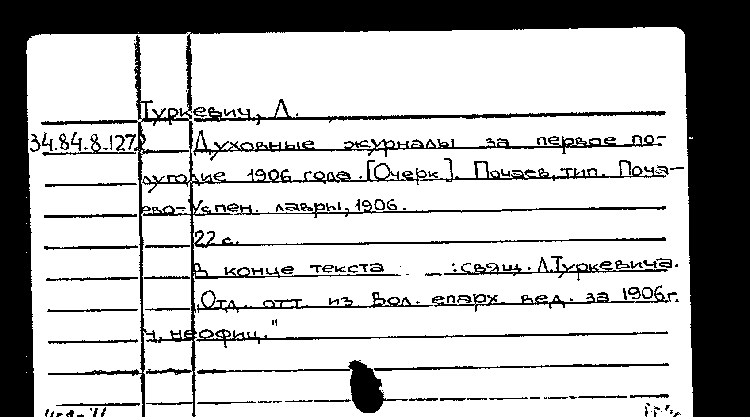 Туркевич, Л.
34.84.8.127 Духовные журналы за первое по-
лугодие 1906 года. [Очерк]. Почаев, тип. Поча-
ево-Успен. лавры, 1906.
22 с.
В конце текста : свящ. Л.Туркевича.
"Отд. отт. из Вол. епарх. вед. за 1906г.
ч. неофиц."